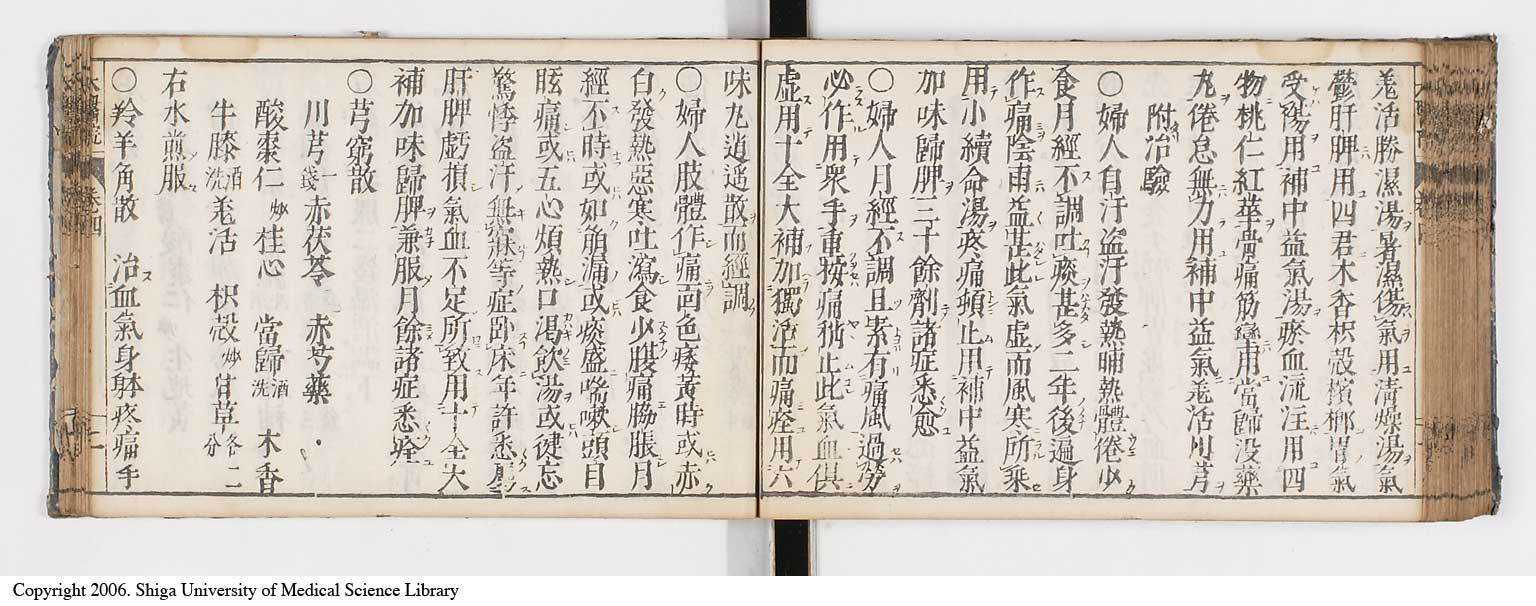 羗活勝濕湯暑濕傷氣用清燥湯氣
鬱肝脾用四君木香枳殼擯榔胃氣
受傷用補中益氣湯瘀血流注用四
物桃仁紅華骨痛筋攣用當歸没藥
丸倦怠無力用補中益氣羗活川芎
附治驗
〇婦人自汗盗汗發熱晡熱體倦少
食月經不調吐痰甚多二年後遍身
作痛陰雨益甚此氣虚而風寒所乘
用小續命湯疼痛頓止用補中益氣
加味歸脾三十餘劑諸症悉愈
〇婦人月經不調且素有痛風過勞
必作用衆手重按痛稍止此氣血倶
虚用十全大補加獨活而痛痊用六
味丸逍遥散而經調
〇婦人肢體作痛面色痿黄時或赤
白發熱惡寒吐瀉食少腹痛脇脹月
經不時或如崩漏或痰盛喘嗽頭目
眩痛或五心煩熱口渴飲湯或健忘
驚悸盗汗無寐等症卧床年許悉屬
肝脾虧損氣血不足所致用十全大
補加味歸脾兼服月餘諸症悉痊
〇芎窮散
川芎一錢 赤茯苓 赤芍藥
酸棗仁炒 桂心 當歸酒洗 木香
牛膝酒洗 羗活 枳殼炒 甘草各二分
右水煎服
〇羚羊角散 治血氣身躰疼痛手
Copyright 2006. Shiga University of Medical Science Library